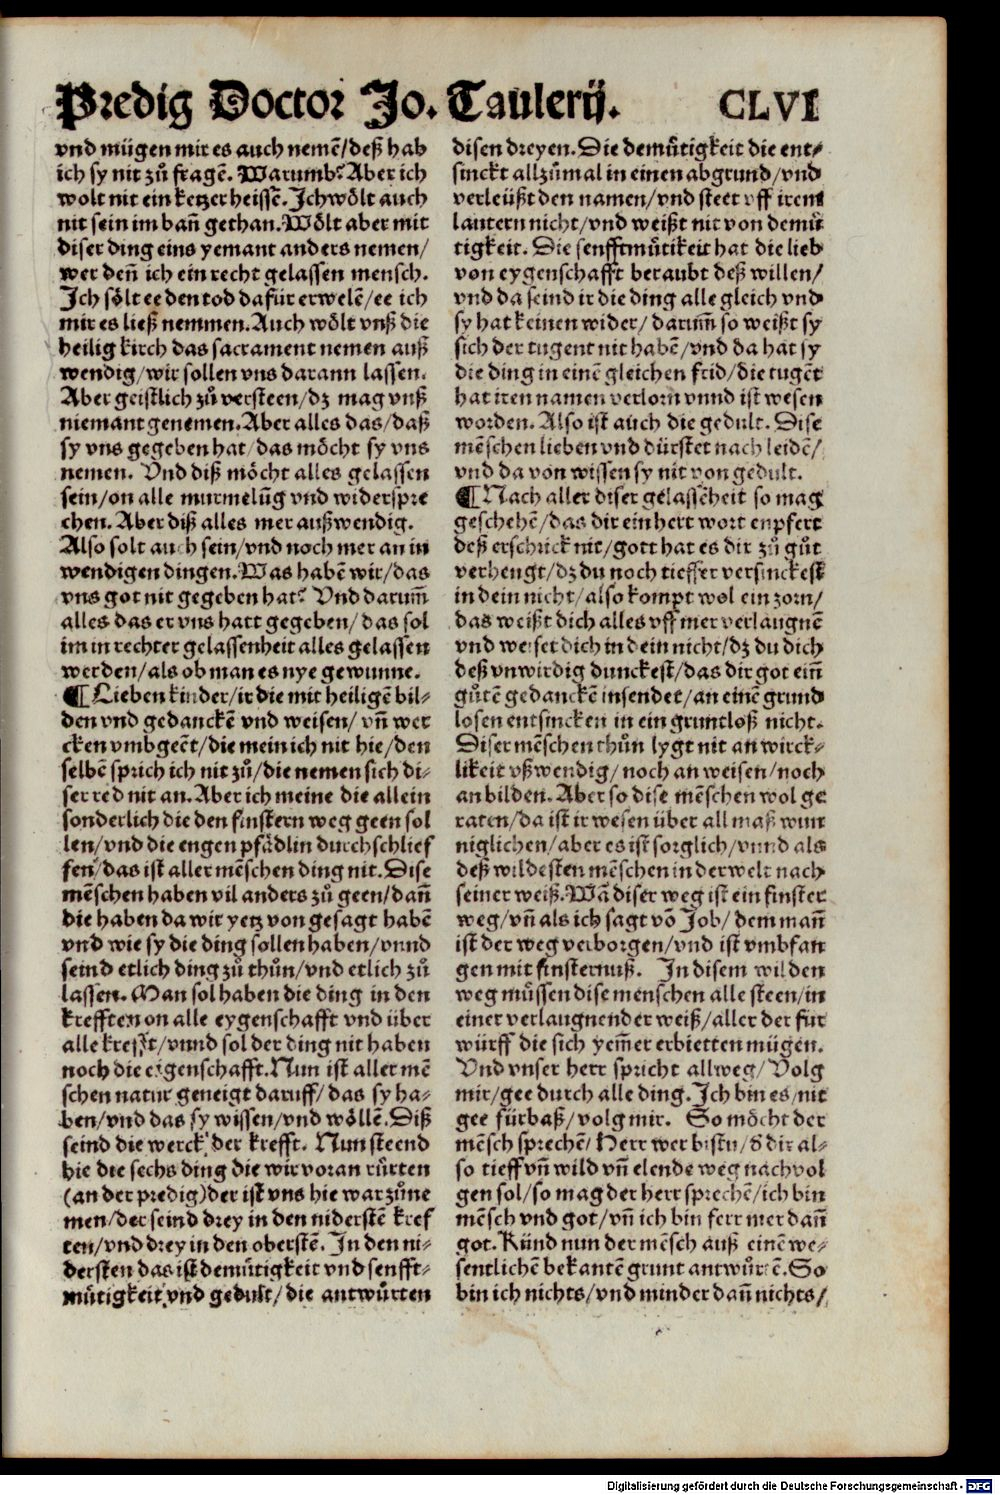 Predig Doctor Jo. Taulerij. CLVI
vnd mügen mir es auch nemẽ/deß hab
ich sy nit zů fragẽ. Warumb? Aber ich
wolt nit ein ketzer heissẽ. Ich wölt auch
nit sein im bañ gethan. Wölt aber mir
diser ding eins yemant anders nemen/
wer deñ ich ein recht gelassen mensch.
Ich sölt ee den tod dafür erwelẽ/ee ich
mir es ließ nemmen. Auch wölt vnß die
heilig kirch das sacrament nemen auß
wendig/wir sollen vns darann lassen.
Aber geistlich zů versteen/dz mag vnß
niemant genemen. Aber alles das/daß
sy vns gegeben hat/das möcht sy vns
nemen. Vnd diß möcht alles gelassen
sein/on alle murmelũg vnd widerspre
chen. Aber diß alles mer außwendig.
Also solt auch sein/vnd noch mer an in
wendigen dingen. Was habẽ wir/das
vns got nit gegeben hat? Vnd darum̃
alles das er vns hatt gegeben/das sol
im in rechter gelassenheit alles gelassen
werden/als ob man es nye gewunne.
¶ Lieben kinder/ir die mit heiligẽ bil⸗
den vnd gedanckẽ vnd weisen/vñ wer
cken vmbgeẽt/die mein ich nit hie/den
selbẽ sprich ich nit zů/die nemen sich di⸗
ser red nit an. Aber ich meine die allein
sonderlich die den finstern weg geen sol
len/vnd die engen pfädlin durchschlief
fen/das ist aller mẽschen ding nit. Dise
mẽschen haben vil anders zů geen/dañ
die haben da wir yetz von gesagt habẽ
vnd wie sy die ding sollen haben/vnnd
seind etlich ding zů thůn/vnd etlich zů
lassen. Man sol haben die ding in den
krefften on alle eygenschafft vnd über
alle krefft/vnnd sol der ding nit haben
noch die eigenschafft. Nun ist aller mẽ
schen natur geneigt daruff/das sy ha⸗
ben/vnd das sy wissen/vnd wöllẽ. Diß
seind die werck der krefft. Nun steend
hie die sechs ding die wir voran růrten
(an der predig) der ist vns hie war zůne
men/der seind drey in den niderstẽ kref
ten/vnd drey in den oberstẽ. In den ni⸗
dersten das ist demütigkeit vnd senfft⸗
mütigkeit vnd gedult/die antwůrten
disen dreyen. Die demůtigkeit die ent⸗
sinckt allzůmal in einen abgrund/vnd
verleüßt den namen/vnd steet vff irem
lautern nicht/vnd weißt nit von demů
tigkeit. Die senfftmůtikeit hat die lieb
von eygenschafft beraubt deß willen/
vnd da seind ir die ding alle gleich vnd
sy hat keinen wider/darum̃ so weißt sy
sich der tugent nit habẽ/vnd da hat sy
die ding in einẽ gleichen frid/die tugẽt
hat iren namen verlorn vnnd ist wesen
worden. Also ist auch die gedult. Dise
mẽschen lieben vnd dürstet nach leidẽ/
vnd da von wissen sy nit von gedult.
¶ Nach aller diser gelassẽheit so mag
geschehẽ/das dir ein hert wort enpfert
deß erschrick nit/gott hat es dir zů gůt
verhengt/dz du noch tieffer versinckest
in dein nicht/also kompt wol ein zorn/
das weißt dich alles vff mer verlaugnẽ
vnd weiset dich in dein nicht/dz du dich
deß vnwirdig dunckest/das dir got eiñ
gůtẽ gedanckẽ insendet/an einẽ grund
losen entsincken in ein gruntloß nicht.
Diser mẽschen thůn lygt nit an wirck⸗
likeit vßwendig/noch an weisen/noch
an bilden. Aber so dise mẽschen wol ge
raten/da ist ir wesen über all maß wun
niglichen/aber es ist sorglich/vnnd als
deß wildesten mẽschen in der welt nach
seiner weiß. Wã diser weg ist ein finster
weg/vñ als ich sagt võ Job/dem mañ
ist der weg verborgen/vnd ist vmbfan
gen mit finsternuß. In disem wilden
weg můssen dise menschen alle steen/in
einer verlaugnender weiß/aller der für
würff die sich yem̃er erbietten mügen.
Vnd vnser herr spricht allweg/Volg
mir/gee durch alle ding. Ich bin es/nit
gee fürbaß/volg mir. So möcht der
mẽsch sprechẽ/Herr wer bistu/d̕ dir al⸗
so tieff vñ wild vñ elende weg nachvol
gen sol/so mag der herr sprechẽ/ich bin
mẽsch vnd got/vñ ich bin ferr mer dañ
got. Künd nun der mẽsch auß einẽ we⸗
sentlichẽ bekantẽ grunt antwůrtẽ. So
bin ich nichts/vnd minder dañ nichts/
Digitalisierung gefördert durch die Deutsche Forschungsgemeinschaft - DFG